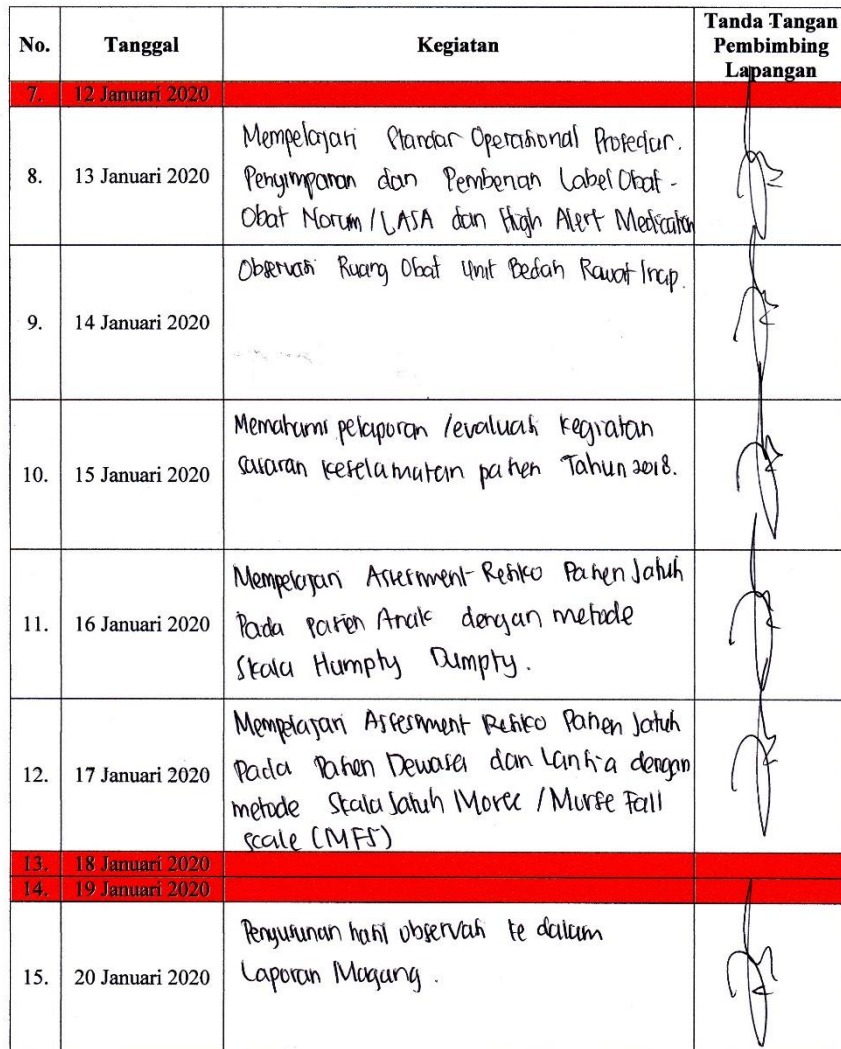 No. Tanggal Kegiatan Tanda Tangan
Pembimbing
Lapangan
7. 12 Januari 2020
8. 13 Januari 2020
Mempelajari Standar Operasional Prosedur.
Penyimpanan dan Pemberian Label Obat-
Obat Norum / LASA dan High Alert Medication
9. 14 Januari 2020
Observasi Ruang Obat Unit Bedah Rawat Inap.
10. 15 Januari 2020
Memahami pelaporan /evaluasi kegiatan
sasaran keselamatan pasien Tahun 2018.
11. 16 Januari 2020
Mempelajari Assesment Resiko Pasien Jatuh
Pada pasien Anak dengan metode
Skala Humpty Dumpty.
12. 17 Januari 2020
Mempelajari Assesment Resiko Pasien Jatuh
Pada Pasien Dewasa dan Lansia dengan
metode Skala Jatuh Morse / Morse Fall
Scale (MFS)
13. 18 Januari 2020
14. 19 Januari 2020
15. 20 Januari 2020
Penyusunan hasil observasi ke dalam
Laporan Magang.